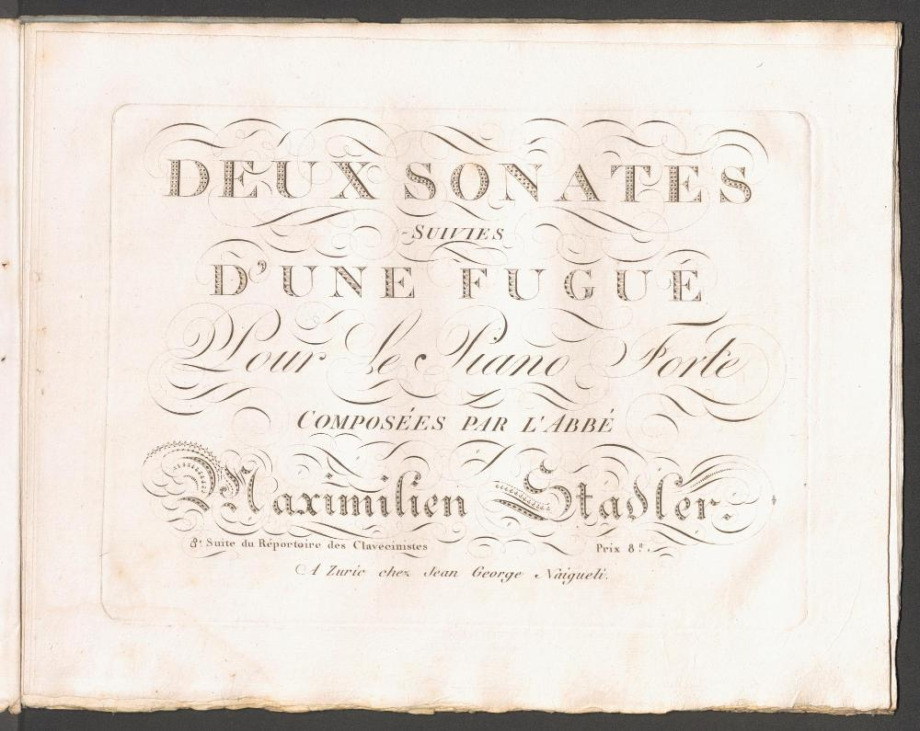 DEUX SONATES
SUIVIES
D'UNE FUGUE
Pour Le Piano Forte
COMPOSÉES PAR L'ABBÉ
Maximilien Stadler.
8.e Suite du Répertoire des Clavecinistes Prix 8.#
A Zuric chez Jean George Naigueli.